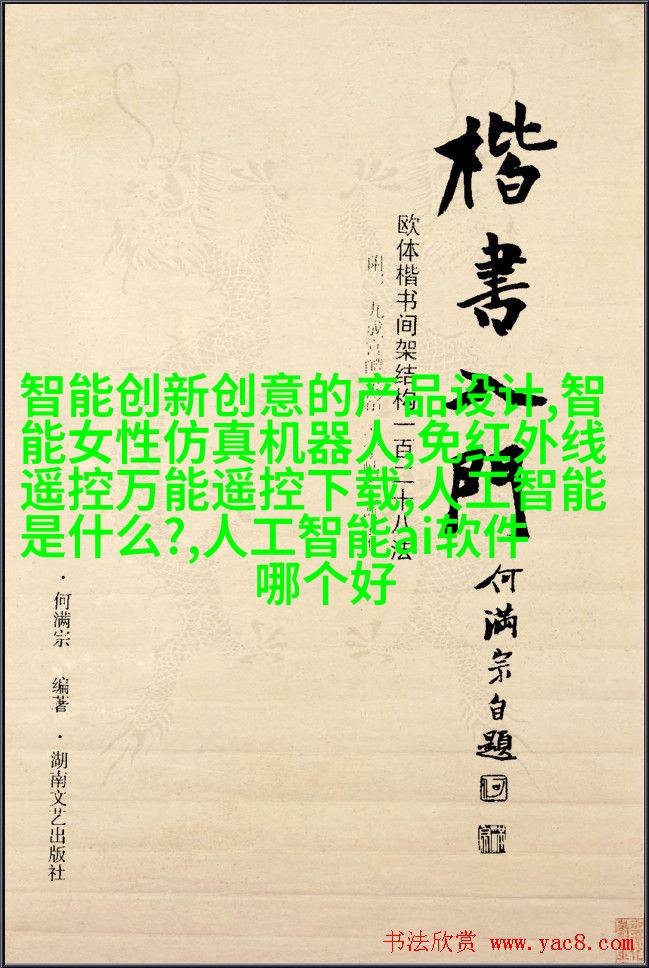 楷書入門
何满宗自题
欧体楷书间架结构一百二十八法
智能创新创意的产品设计,智
能女性仿真机器人,免红外线
遥控万能遥控下载,人工智能
是什么?,人工智能ai软件
哪个好
·何满宗 编著·湖南文艺出版社
书法欣赏 www.yac8.com